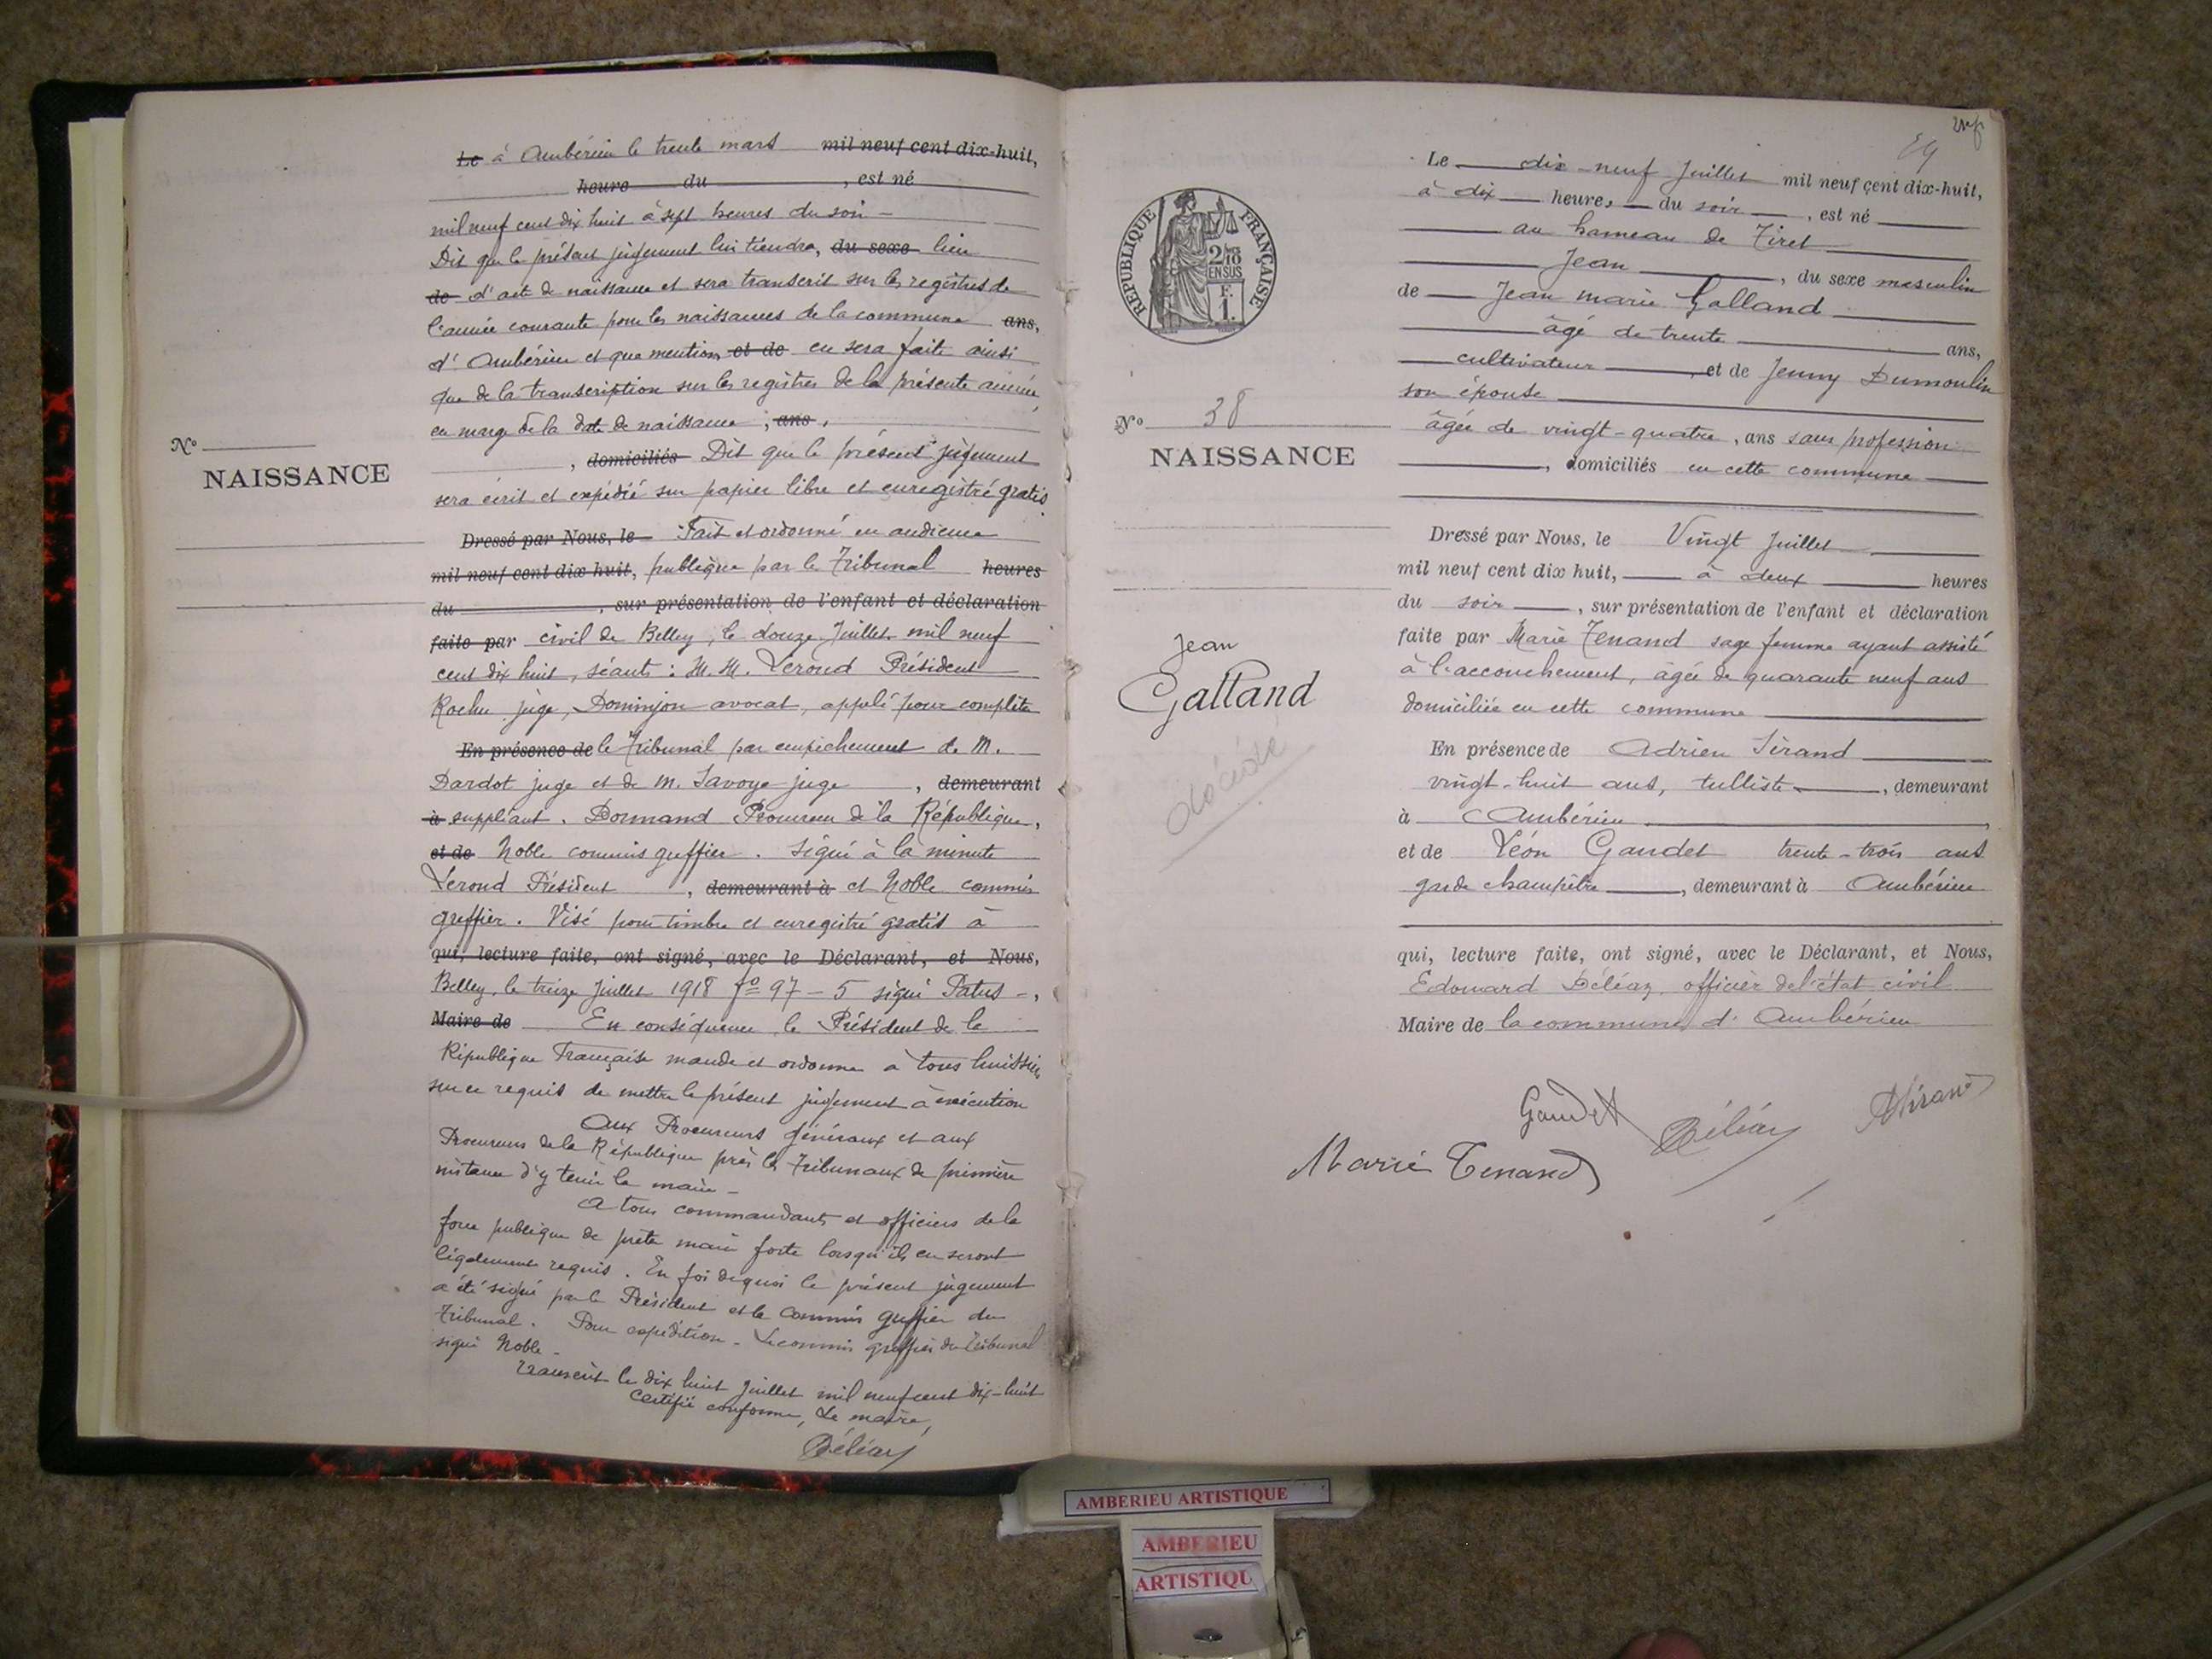 Le à Ambérieu le trente mars mil neuf cent dix-huit,
heure du , est né
mil neuf cent dix huit à sept heures du soir –
Dit que le présent jugement lui tiendra, du sexe lieu
de d'acte de naissance et sera transcrit sur les registres de
l'année courante pour les naissances de la commune ans,
d'Ambérieu et que mention et de en sera faite ainsi
que de la transcription sur les registres de la présente année,
en marge de la date de naissance , ans,
, domiciliés Dit que le présent jugement
sera écrit et expédié sur papier libre et enregistré gratis
N°
NAISSANCE
Dressé par Nous, le Fait et ordonné en audience
mil neuf cent dix huit, publique par le Tribunal heures
du , sur présentation de l'enfant et déclaration
faite par civil de Belley, le douze Juillet mil neuf
cent dix huit, séants : M.M. Léroud Président
Rochu juge, Dominjon avocat, appelé pour compléter
En présence de le Tribunal par empêchement de M.
Dardot juge et de M. Savoye juge , demeurant
à suppléant. Dormand Procureur de la République,
et de Noble commis greffier. Signé à la minute
Léroud Président , demeurant à et Noble commis
greffier. Visé pour timbre et enregistré gratis à
qui, lecture faite, ont signé, avec le Déclarant, et Nous,
Belley, le treize Juillet 1918 f° 97 – 5 signé Patus –,
Maire de En conséquence le Président de la
République Française mande et ordonne à tous huissiers
sur ce requis de mettre le présent jugement à exécution
Aux Procureurs Généraux et aux
Procureurs de la République près les Tribunaux de première
instance d'y tenir la main –
A tous commandants et officiers de la
force publique de prêter main forte lorsqu'ils en seront
légalement requis. En foi de quoi le présent jugement
a été signé par le Président et le commis greffier du
Tribunal. Pour expédition – Le commis greffier du Tribunal
signé Noble –
Transcrit le dix huit Juillet mil neuf cent dix-huit
Certifié conforme, Le maire,
Béléaz
RÉPUBLIQUE FRANÇAISE
2/10
EN SUS
F.
1.
N° 38
NAISSANCE
Jean
Galland
décédé
Le dix-neuf Juillet mil neuf cent dix-huit,
à dix heures du soir , est né
au hameau de Tiret
Jean , du sexe masculin
de Jean marie Galland
âgé de trente ans,
cultivateur , et de Jenny Dumoulin
son épouse
âgée de vingt-quatre, ans sans profession
, domiciliés en cette commune
Dressé par Nous, le Vingt Juillet
mil neuf cent dix huit, à deux heures
du soir , sur présentation de l'enfant et déclaration
faite par Marie Tenand sage femme ayant assisté
à l'accouchement, âgée de quarante neuf ans
domiciliée en cette commune
En présence de Adrien Sirand
vingt-huit ans, tulliste , demeurant
à Ambérieu ,
et de Léon Gaudet trente-trois ans
garde champêtre , demeurant à Ambérieu
qui, lecture faite, ont signé, avec le Déclarant, et Nous,
Edouard Béléaz officier de l'état civil
Maire de la commune d'Ambérieu
Gaudet Béléaz ASirand
Marie Tenand
AMBERIEU ARTISTIQUE
AMBERIEU
ARTISTIQU